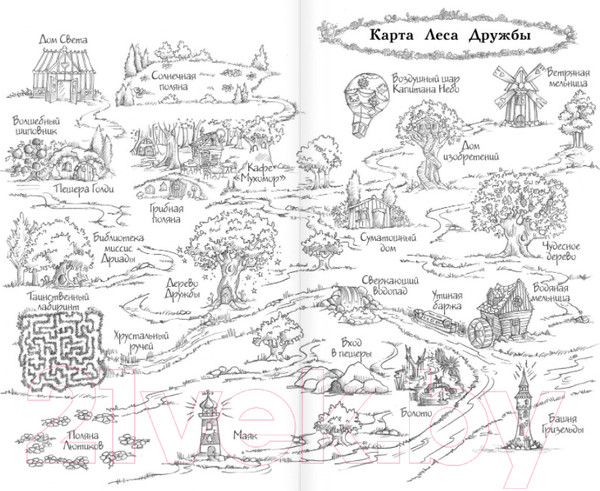 Карта Леса Дружбы
Дом Света
Солнечная
поляна
Воздушный шар
Капитана Небо
Ветряная
мельница
Волшебный
шиповник
Дом
изобретений
Кафе
«Мухомор»
Пещера Голди
Грибная
поляна
Библиотека
миссис
Дриады
Суматошный
дом
Чудесное
дерево
Таинственный
лабиринт
Дерево
Дружбы
Сверкающий
водопад
Утиная
баржа
Водяная
мельница
Хрустальный
ручей
Вход
в пещеры
Болото
Поляна
Лютиков
Маяк
Башня
Гризельды
21vek.by